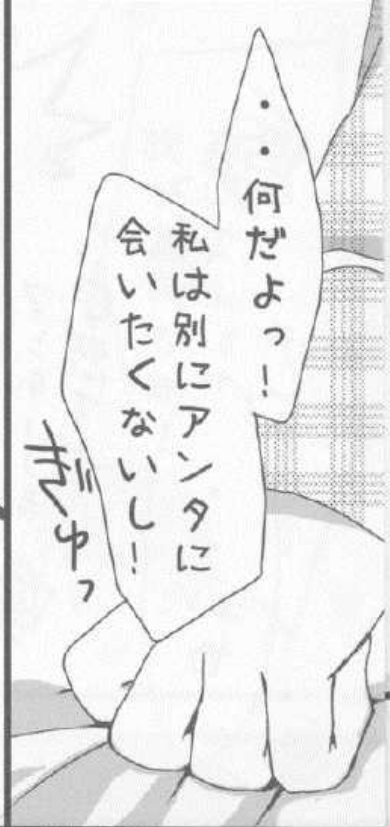 ・・何だよっ!
私は別にアンタに
会いたくないし!
ぎゅっ